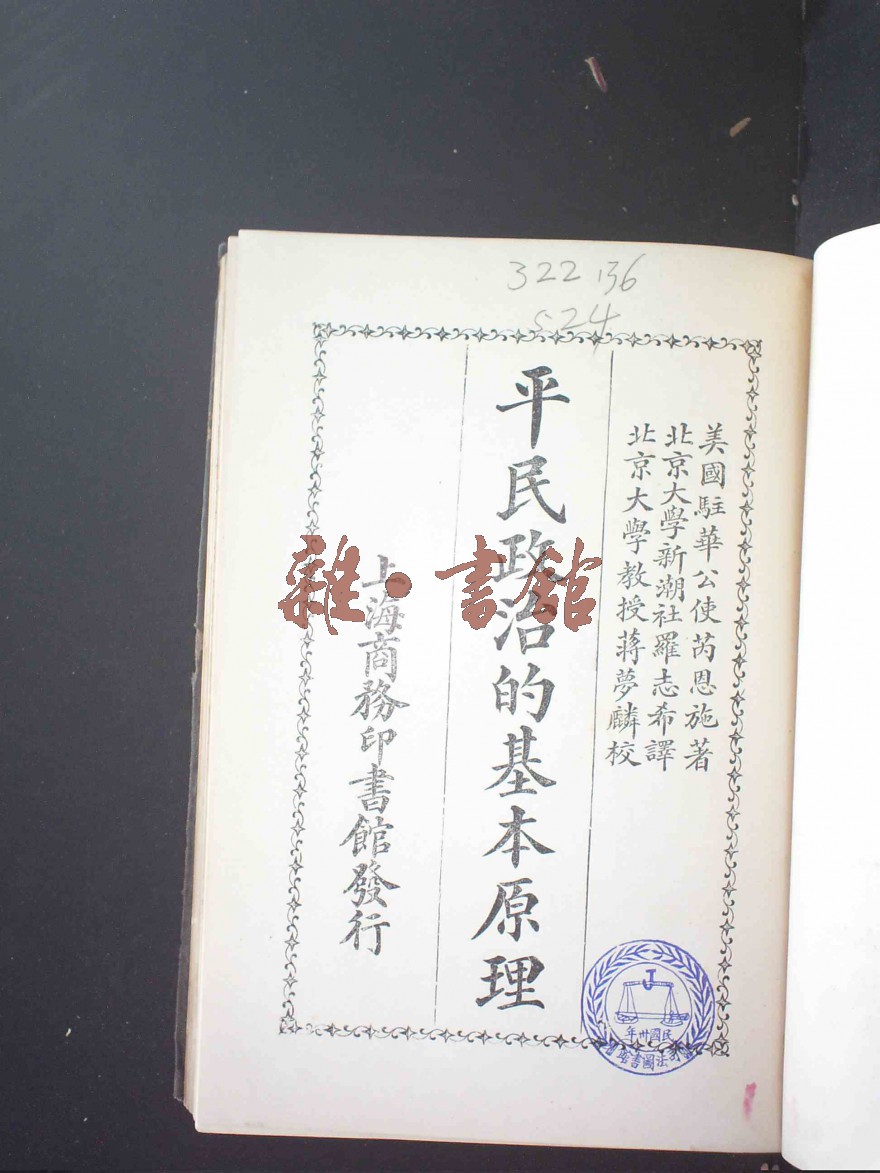 322 136
524
美國駐華公使芮恩施著
北京大學新潮社羅志希譯
北京大學教授蔣夢麟校
平民政治的基本原理
上海商務印書館發行
雜·書館
民國卅年